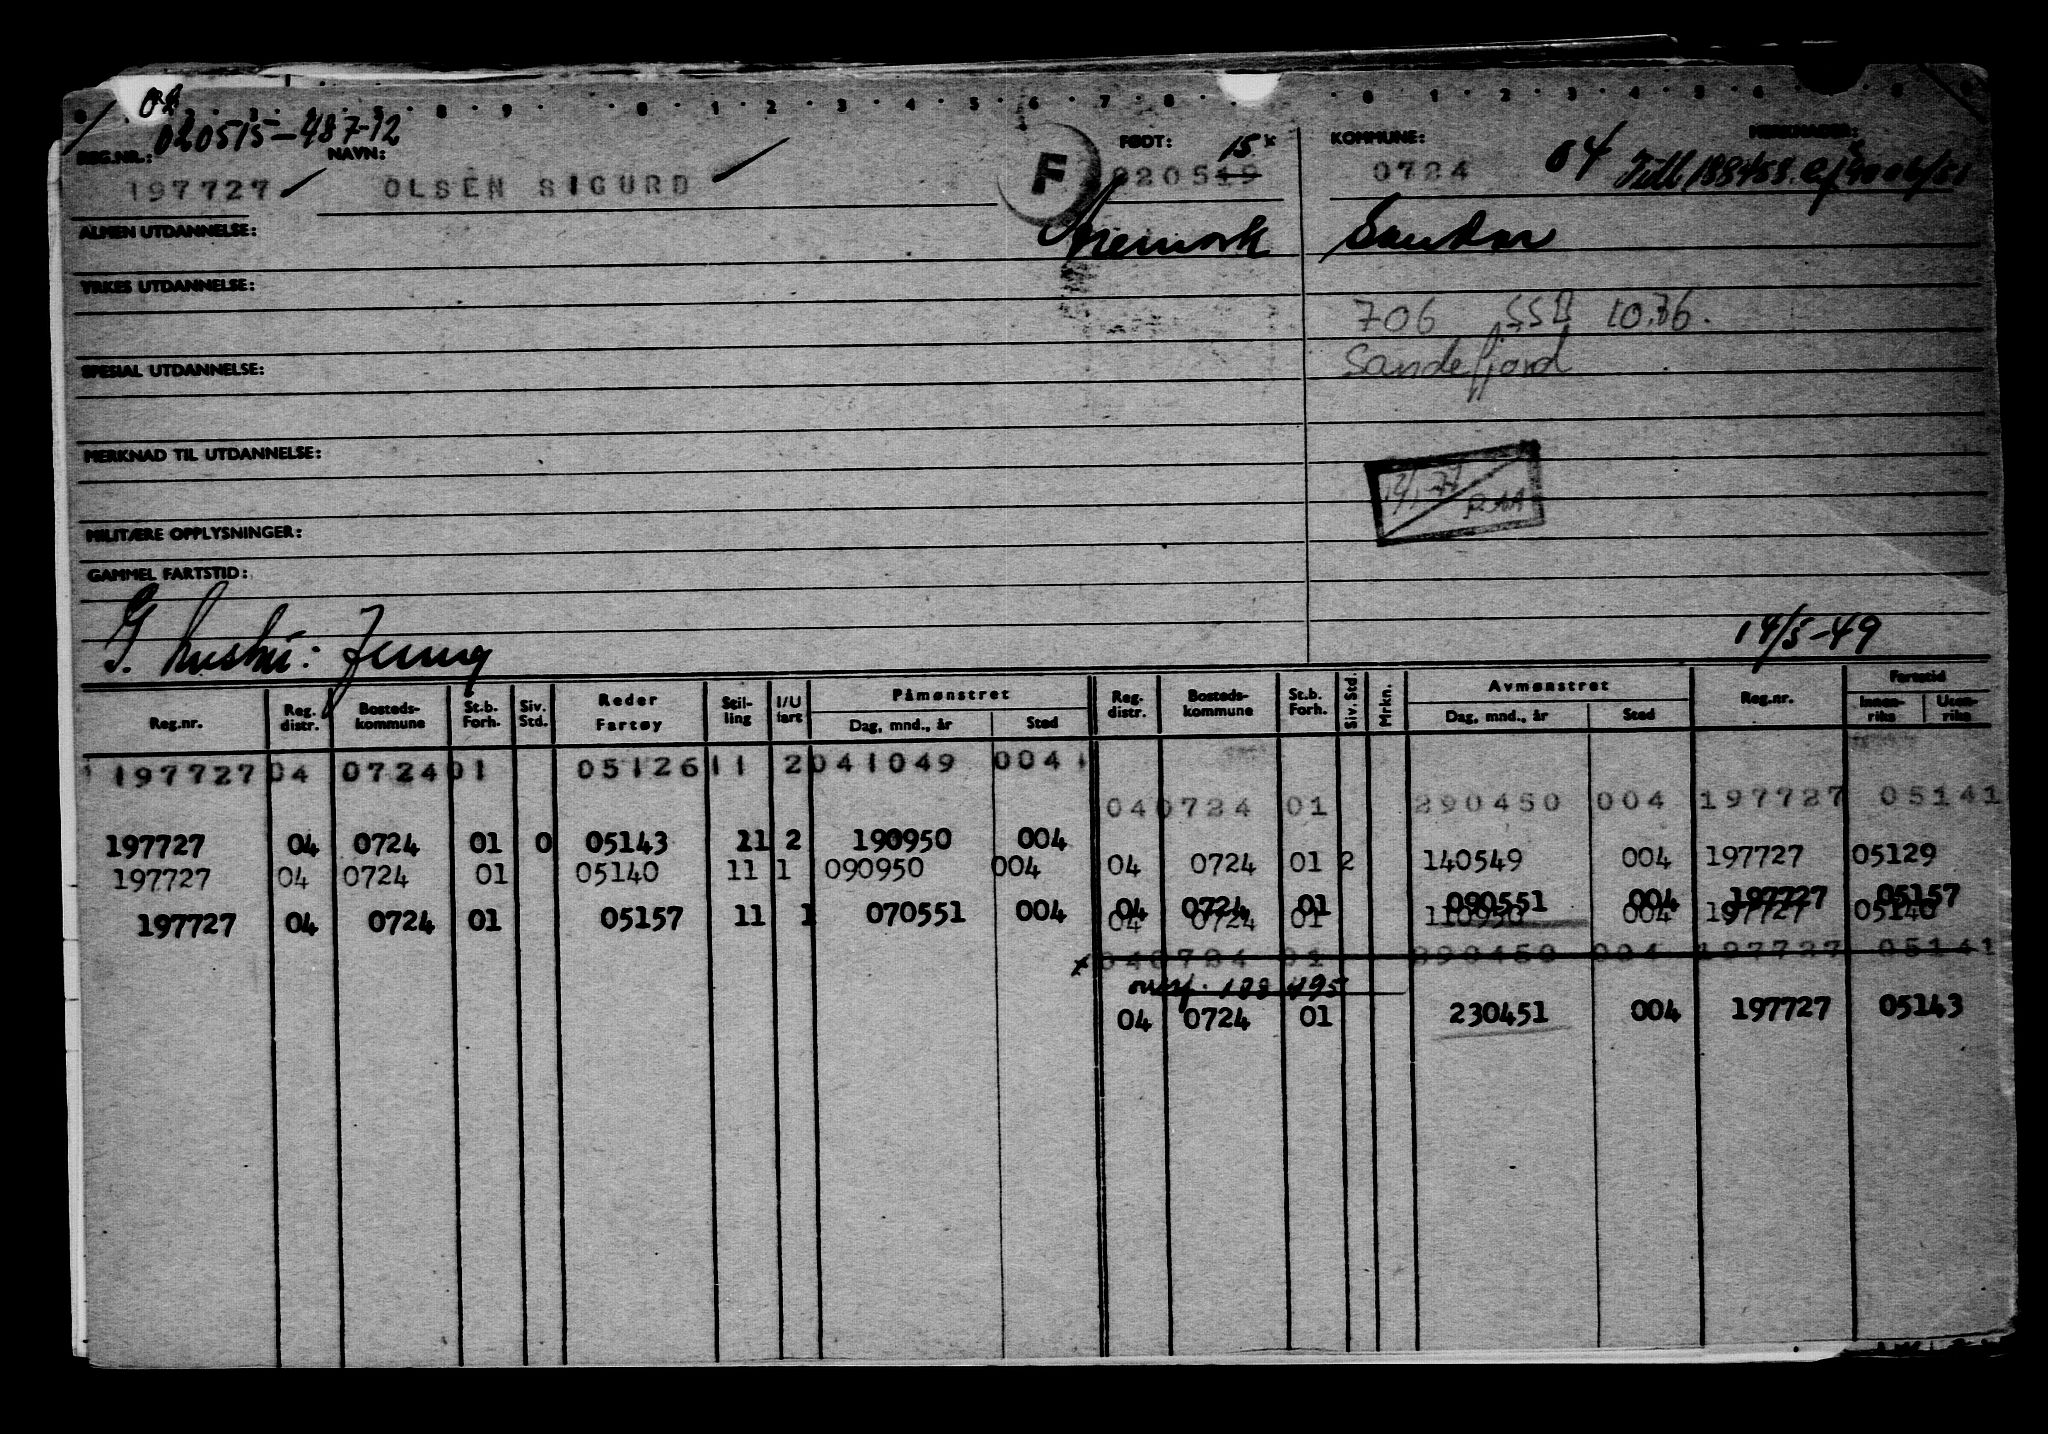 020515-48712
REG.NR.: NAVN: FØDT: 15x KOMMUNE: MERKNADER:
197727 OLSEN SIGURD F 020519 0724 04
ALMEN UTDANNELSE: Aremark Sandar
YRKES UTDANNELSE:
706 SSB 10.76.
SPESIAL UTDANNELSE: Sandefjord
MERKNAD TIL UTDANNELSE:
MILITÆRE OPPLYSNINGER:
GAMMEL FARTSTID:
14/5-49
Reg.nr. Reg. distr. Bosteds-kommune St.b. Forh. Siv. Std. Reder Fartøy Stil-ling I/U fart Påmønstret Dag, mnd., år Sted Reg. distr. Bosteds-kommune St.b. Forh. Siv. Std. Mrkn. Avmønstret Dag, mnd., år Sted Reg.nr. Fartstid Innen-riks Uten-riks
197727 04 0724 01 05126 11 2 041049 004
04 0724 01 290450 004 197727 05141
197727 04 0724 01 0 05143 11 2 190950 004
04 0724 01 2 140549 004 197727 05129
197727 04 0724 01 05140 11 1 090950 004
04 0724 01 090551 004 197727 05157
197727 04 0724 01 05157 11 1 070551 004
04 0724 01 110950 004 197727 05140
x 04 0724 01 290450 004 197727 05141
04 0724 01 230451 004 197727 05143